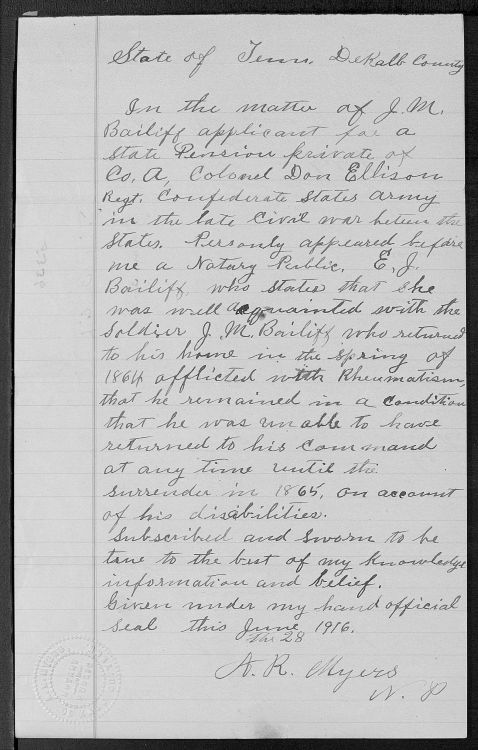 State of Tenn. DeKalb County
In the matter of J. M.
Bailiff applicant for a
State Pension private of
Co. A, Colonel Don Ellison
Regt. Confederate States army
in the late Civil war beteen the
States. Personly appeared before
me a Notary Public. E. J.
Bailiff, who states that she
was well acquainted with the
Soldier J. M. Bailiff who returned
to his home in the spring of
1864 afflicted with Rheumatism,
that he remained in a condition
that he was unable to have
returned to his command
at any time until the
surrender in 1865, on account
of his disibilities.
Subscribed and sworn to be
true to the best of my knowledge
information and belief.
Given under my hand official
seal this June 1916.
the 28
A. R. Myers
N. P